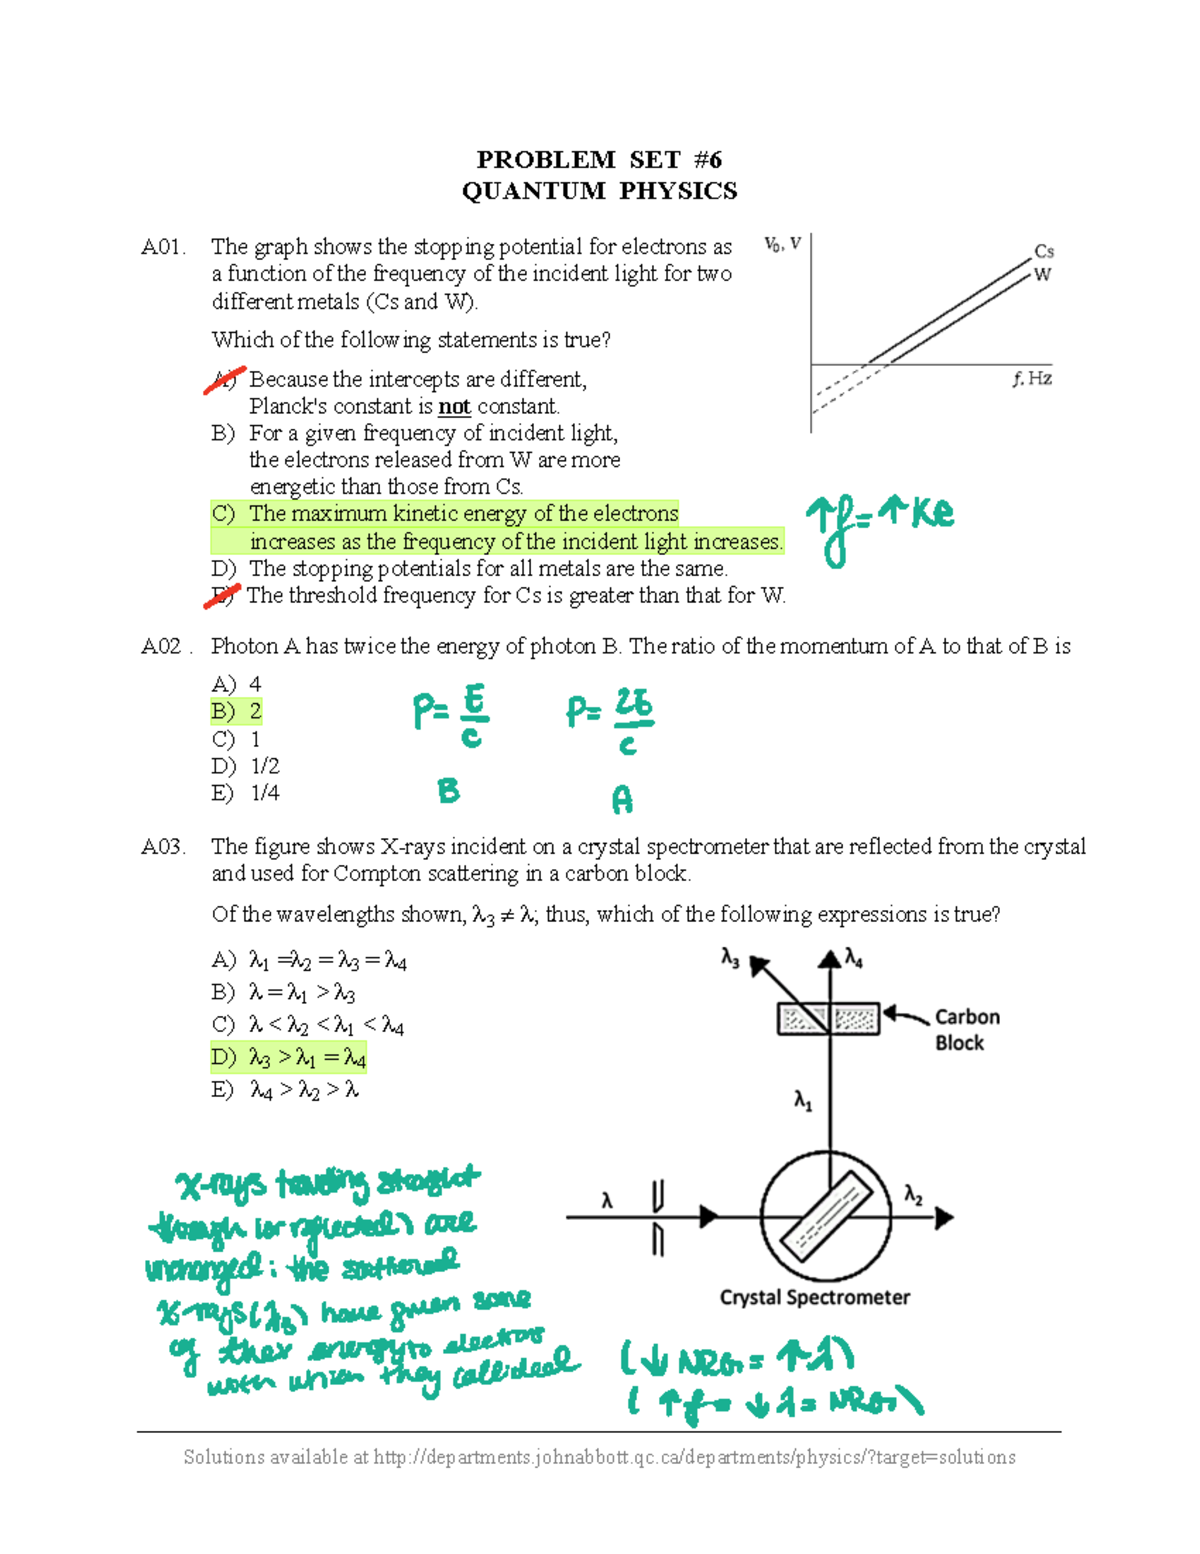 PROBLEM SET #6
QUANTUM PHYSICS
A01. The graph shows the stopping potential for electrons as
a function of the frequency of the incident light for two
different metals (Cs and W).
V₀, V
Cs
W
f, Hz
Which of the following statements is true?
A) Because the intercepts are different,
Planck's constant is not constant.
B) For a given frequency of incident light,
the electrons released from W are more
energetic than those from Cs.
C) The maximum kinetic energy of the electrons
increases as the frequency of the incident light increases.
↑f=↑Ke
D) The stopping potentials for all metals are the same.
E) The threshold frequency for Cs is greater than that for W.
A02 . Photon A has twice the energy of photon B. The ratio of the momentum of A to that of B is
A) 4
B) 2
C) 1
D) 1/2
E) 1/4
P= E/c
B
P= 2E/c
A
A03. The figure shows X-rays incident on a crystal spectrometer that are reflected from the crystal
and used for Compton scattering in a carbon block.
Of the wavelengths shown, λ₃ ≠ λ; thus, which of the following expressions is true?
A) λ₁ =λ₂ = λ₃ = λ₄
B) λ = λ₁ > λ₃
C) λ < λ₂ < λ₁ < λ₄
D) λ₃ > λ₁ = λ₄
E) λ₄ > λ₂ > λ
λ₃
λ₄
Carbon
Block
λ₁
λ
λ₂
Crystal Spectrometer
X-rays traveling straight
through (or reflected) are
unchanged; the scattered
X-rays (λ₃) have given some
of their energy to electrons
with which they collided
(↓ NRG = ↑ λ)
( ↑ f = ↓ λ = NRG)
Solutions available at http://departments.johnabbott.qc.ca/departments/physics/?target=solutions